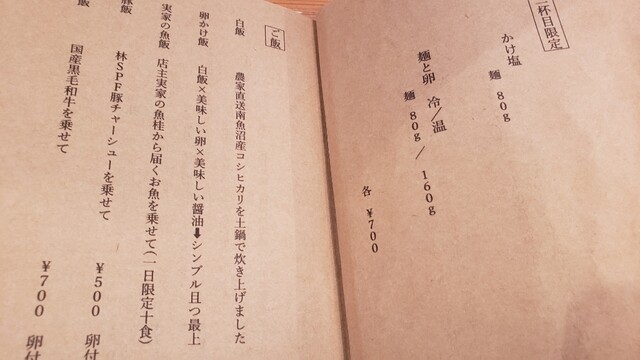 二杯目限定
かけ塩 麺 80g
麺と卵 冷/温
麺 80g / 160g
各 ¥700
ご飯
白飯 農家直送南魚沼産コシヒカリを土鍋で炊き上げました
卵かけ飯 白飯×美味しい卵×美味しい醤油➡シンプル且つ最上
実家の魚飯 店主実家の魚桂から届くお魚を乗せて(一日限定十食)
豚飯 林SPF豚チャーシューを乗せて ¥500 卵付
飯 国産黒毛和牛を乗せて ¥700 卵付